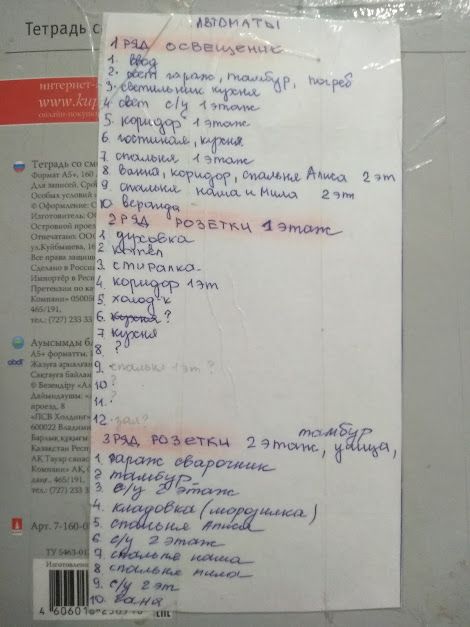 Тетрадь с
интернет-
www.kup
онлайн-покупо
АВТОМАТЫ
1 РЯД ОСВЕЩЕНИЕ
1. ввод
2. свет гараж, тамбур, погреб
3. светильник кухня
4. свет с/у 1 этаж
5. коридор 1 этаж
6. гостиная, кухня
7. спальня 1 этаж
8. ванна, коридор, спальня Алиса 2 эт
9. спальня наша и Мила 2 эт
10. веранда
2 РЯД РОЗЕТКИ 1 этаж
1. духовка
2. котел
3. стиралка
4. коридор 1 эт
5. холод-к
6. кухня ?
7. кухня
8. ?
9. спальня 1 эт ?
10. ?
11. ?
12. зал?
3 РЯД РОЗЕТКИ 2 этаж, улица, тамбур
1. гараж сварочник
2 тамбур
3. с/у 2 этаж
4. кладовка (морозилка)
5. спальня Алиса
6. с/у 2 этаж
7 спальня наша
8 спальня мила
9. с/у 2 эт
10. вана
Тетрадь со сме
Формат А5+, 160
Для записей. Сро
Особых условий
© Оформление:
Изготовитель: ОО
Островной проезд
Отпечатано: ООО
ул.Куйбышева, 16
Все права защищ
Сделано в Росси
Импортёр в Респ
Претензии по ка
Компани» 05005
465/191,
тел.: (727) 233 33
Ауысымды бл
А5+ форматты,
Жазуға арналға
Сақтауға байлан
© Безендіру «Ал
Дайындаушы:
проезд, 8
«ПСВ Холдинг»
600022 Владими
Барлық құқығы
Қазақстан Респу
АҚ Тауар сапас
Компани» ЖШС
465/191,
тел.: (727) 233 3
Арт. 7-160-0
ТУ 5463-01
Изготовлено